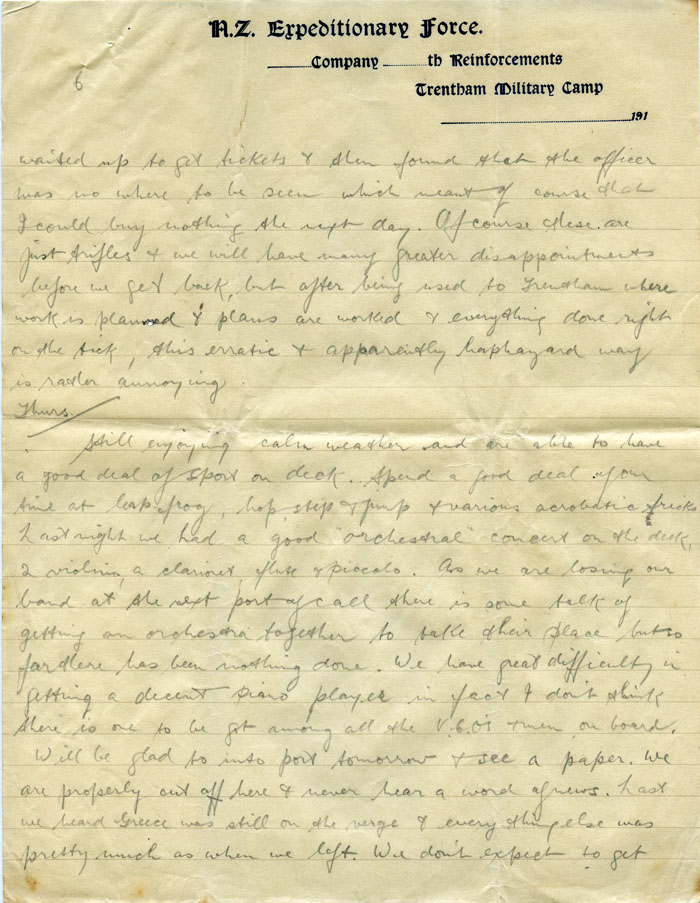 N.Z. Expeditionary Force.
Company th Reinforcements
Trentham Military Camp
191
6
waited up to get tickets & then found that the officer
was no where to be seen which meant of course that
I could buy nothing the next day. Of course these are
just trifles & we will have many greater disappointments
before we get back, but after being used to Trentham where
work is planned & plans are worked & everything done right
on the tick, this erratic & apparently haphazard way
is rather annoying.
Thurs.
Still enjoying calm weather and are able to have
a good deal of sport on deck. Spend a good deal of our
time at leap frog, hop step & jump & various acrobatic tricks
Last night we had a good "orchestral" concert on the deck,
2 violins, a clarionet, flute & piccolo. As we are losing our
band at the next port of call there is some talk of
getting an orchestra together to take their place but so
far there has been nothing done. We have great difficulty in
getting a decent piano player in fact I don't think
there is one to be got among all the & men on board.
Will be glad to into port tomorrow & see a paper. We
are properly cut off here & never hear a word of news. Last
we heard Greece was still on the verge & every thing else was
pretty much as when we left. We don't expect to get